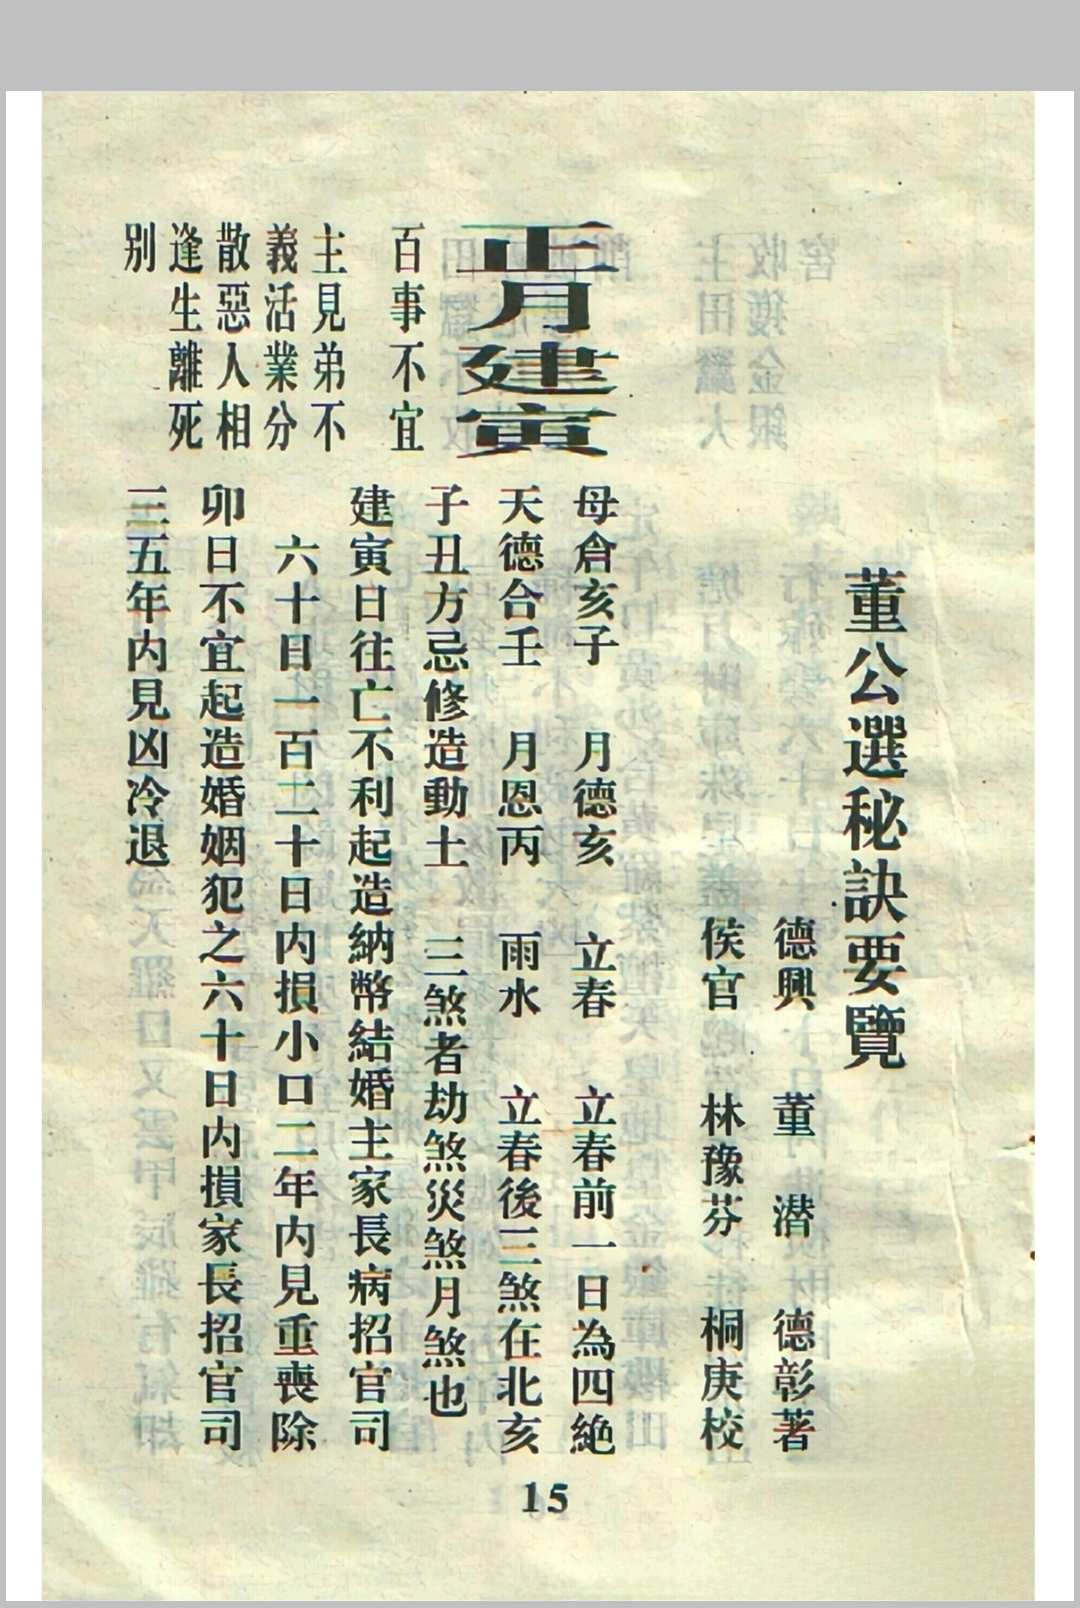 董公選秘訣要覽
德興 董 潜 德彰著
侯官 林豫芬 桐庚校
正月建寅
百事不宜
主見弟不
義活業分
散惡人相
逢生離死
别
母倉亥子 月德亥 立春 立春前一日為四絶
天德合壬 月恩丙 雨水 立春後三煞在北亥
子丑方忌修造動土 三煞者劫煞災煞月煞也
建寅日往亡不利起造納幣結婚主家長病招官司
六十日一百二十日内損小口二年内見重喪除
卯日不宜起造婚姻犯之六十日内損家長招官司
三五年内見凶冷退
15